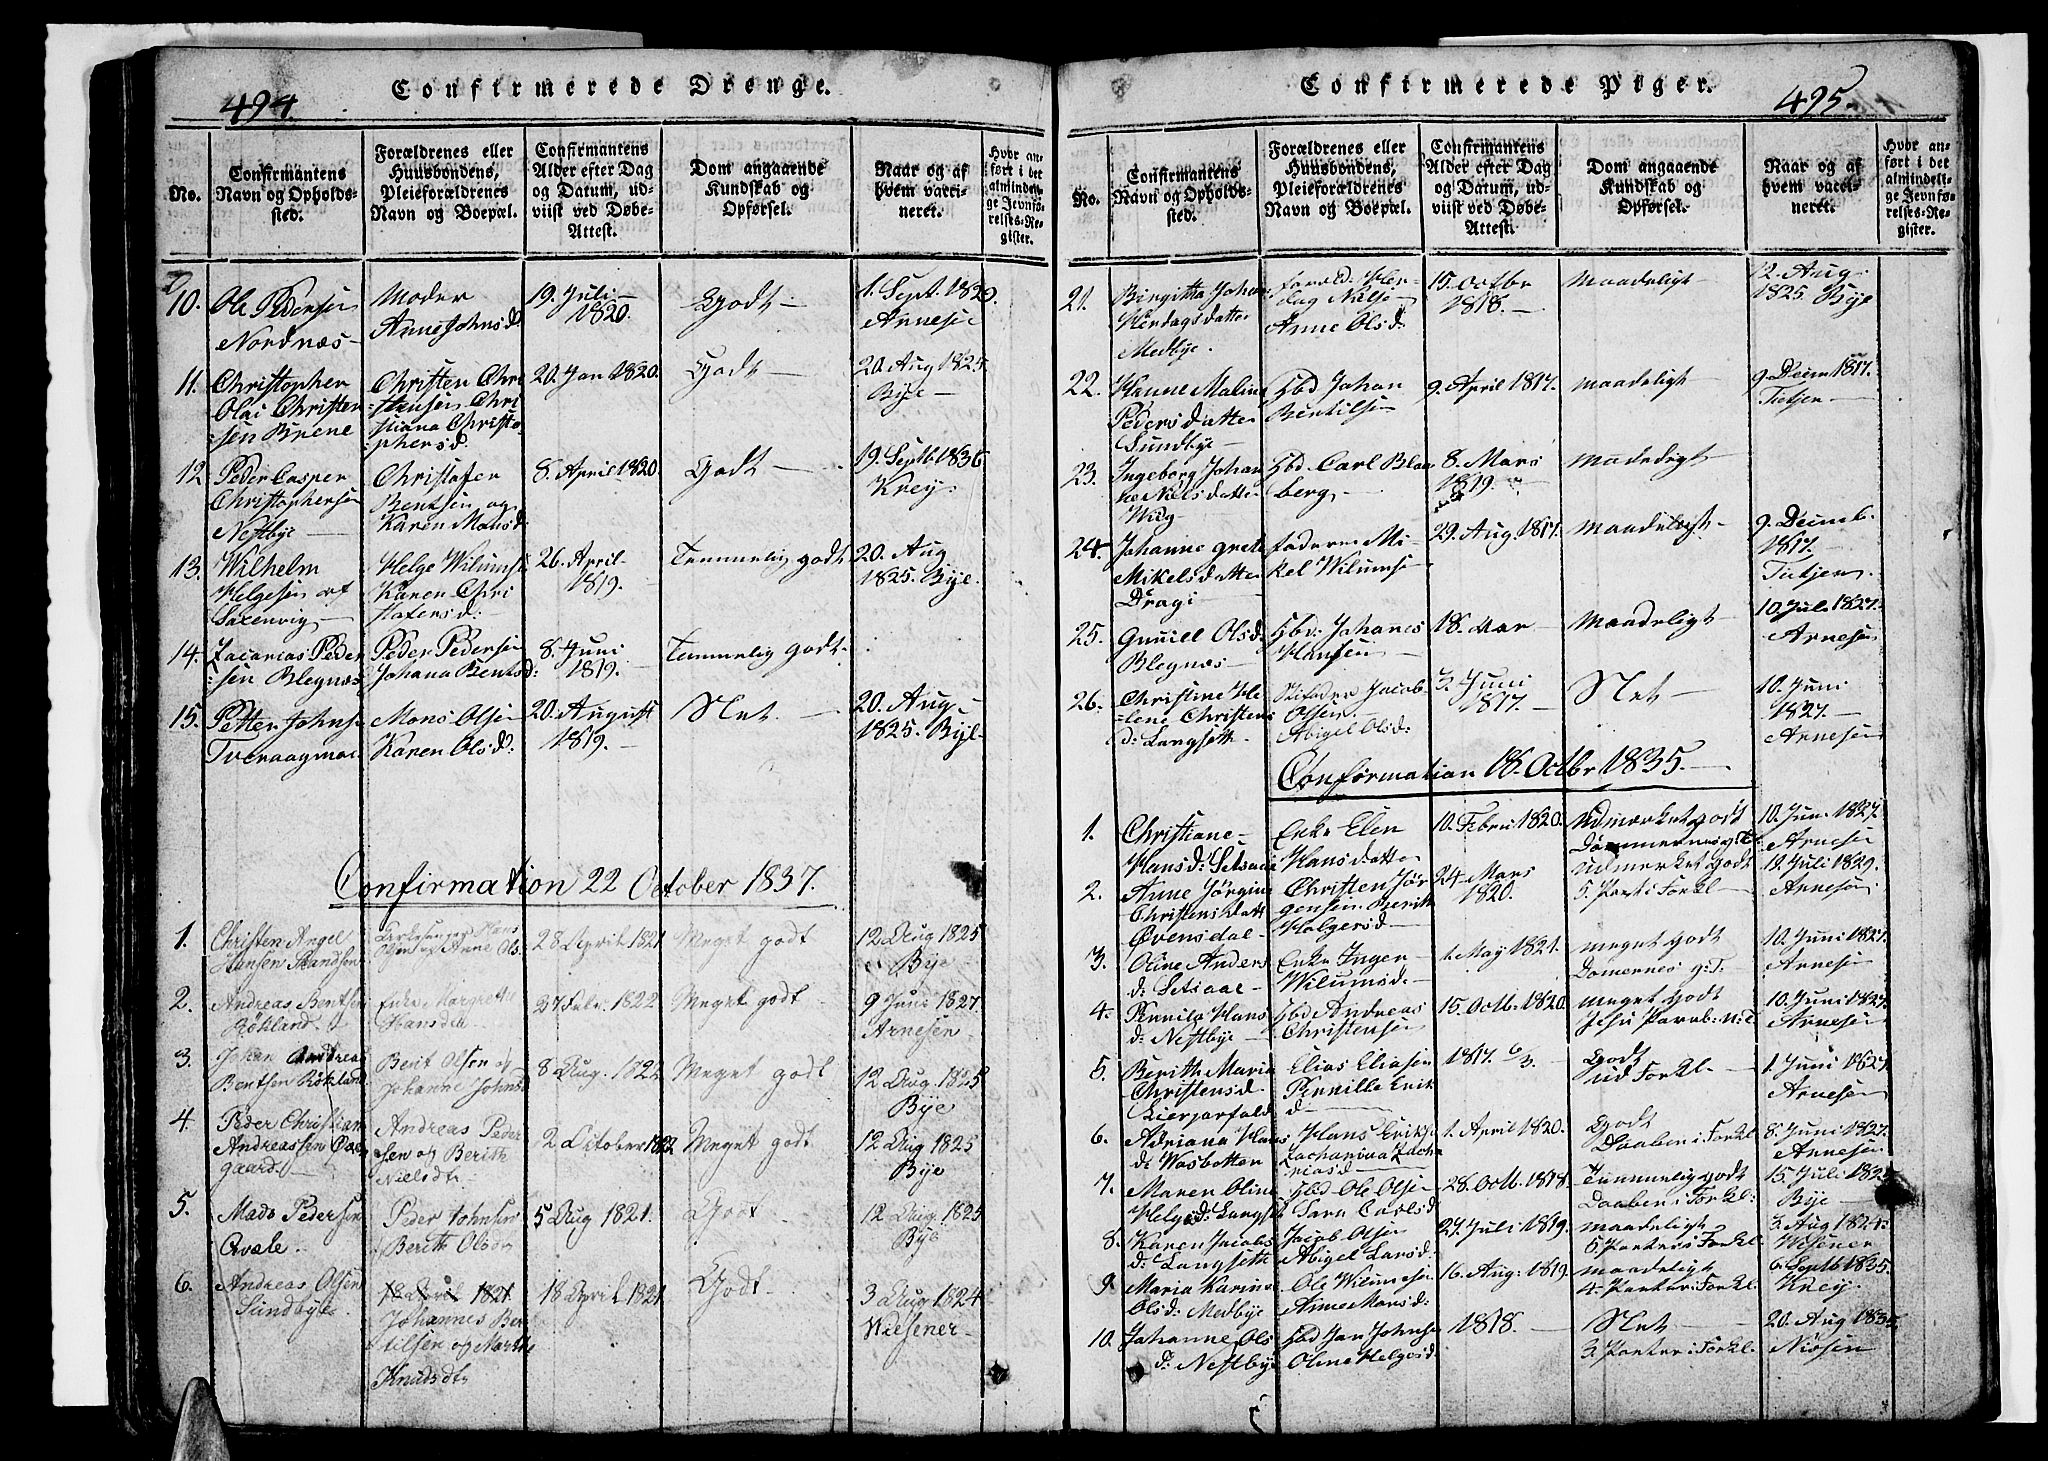 494.
Confirmerede Drenge.
No.
Confirmantens
Navn og Opholds-
sted.
Forældrenes eller
Huusbondens,
Pleieforældrenes
Navn og Boepæl.
Confirmantens
Alder efter Dag
og Datum, ud-
viist ved Døbe-
Attest.
Dom angaaende
Kundskab og
Opførsel.
Naar og af
hvem vacci-
neret.
Hvor an-
ført i det
almindeli-
ge Jevnfø-
relses-Re-
gister.
10.
Ole Pedersen
Nordnæs-
Moder
Anne Johnsd
19. Juli
1820.
Godt
1. Sept.
Arnesen
11.
Christopher
Olai Christen-
sen Brene
Christen Chri
stensen Chri
stiana Christo
phersd.
20. Jan 1820.
Godt
20 Aug 1825
Bye
12
Peder Casper
Christophersen
Nestbye
Christofer
Bentsen og
Karen Monsd:
8. April 1820.
Godt
19. Septb 1836
Krey.
13.
Wilhelm
Helgesen af
Saxenvig
Helge Wilumse
Karen Chri
stofersd.
26. April
1819.
Temmelig godt
20. Aug
1825. Bye.
14.
Zacarias Peder
sen Blegnæs
Peder Pedersen
Johana Bentsd:
8. Juni
1819.
Temmelig godt.
15.
Petter Johnse
Tveraagmoe
Mons Olsen
Karen Olsd:
20. August
1819.
Slet.
20. Aug
1825. Bye
Confirmation 22 October 1837.
1.
Christen Angel
Hansen
Hans
Olsen og Anne Ols.
28 April 1821
Meget godt
12 Aug 1825
Bye
2.
Andreas Bentsen
Røkland.
Enke Margrethe
Hansdtr
27 Febr. 1822
Meget godt
9 Juni 1827
Arnesen
3.
Johan Andreas
Bentsen Røkland
Bent Olsen og
Johanne Johns
8 Aug. 1822
Meget godt
12 Aug 1825
Bye
4.
Peder Christian
Andreassen
gaard.
Andreas Peder
sen og Berith
Nielsdtr
2 October 1822
Meget godt
12 Aug 1825
Bye
5.
Mads Pedersen
Qvale.
Peder Johnsen
Berith Olsdtr
5 Aug 1821.
Godt
12 Aug 1825
Bye
6.
Andreas Olsen
Sundbye.
18 April 1821
Johannes Ber
tilsen og Marthe
Knudsdtr
18 April 1821
Godt
3 Aug 1824
Wiesener
Confirmerede Piger.
495.
No.
Confirmantens
Navn og Opholds-
sted.
Forældrenes eller
Huusbondens,
Pleieforældrenes
Navn og Boepæl.
Confirmantens
Alder efter Dag
og Datum, ud-
viist ved Døbe-
Attest.
Dom angaaende
Kundskab og
Opførsel.
Naar og af
hvem vacci-
neret.
Hvor an-
ført i det
almindeli-
ge Jevnfø-
relses-Re-
gister.
21.
Birgitha Johan
Herdagsdatter
Medbye.
Foræld: Her-
dag Nilse
Anne Olsd:
15. Octbr
1818.
Maadeligt
12. Aug:
1825. Bye
22.
Hanne Malina
Pedersdatter
Sundbye
Hbd Johan
Bertilsen
9. April 1817.
maadeligt
9. Decm 1817.
Tetjen
23.
Ingeborg Johan
ne Nielsdatter
Wiig
Hbd Carl Blom
berg
8. Mars
1819.
Maadeligt
24.
Johanne Grete
Mikelsdatter
Dragi
faderen Mi-
kel Wilumse
29. Aug. 1817.
maadeligt
9. Decmb.
1817.
Tetjen
25.
Guniel Olsd.
Blegnæs
Hbd: Johanes
Hansen
18. Mar
Maadeligt
10. Juli 1827.
Arnesen
26.
Christine He
lene Christens
d: Langseth
Stifader Jacob
Olsen.
Abigel Olsd:
3. Juni
1817.
Slet
10. Juni
1827.
Arnesen
Confirmation 18. Octbr 1835.
1.
Christiane
Hansd: Setsaae
Enke Elen
Hansdatter
10. Febru 1820.
Udmærket godt
10. Juni 1827.
Arnesen
2.
Anne Jørgine
Christensdatt
Øvensdal
Christen Jør
gensen. Berith
Holgersd
24. Mars
1820.
udmerket godt
5. Part i Forkl
12. Juli 1829.
Arnesen
3.
Oline Anders
d: Setsaae
Enke Inger
Wilumsd.
1. May 1821.
meget godt
10. Juni 1827.
Arnesen
4.
Pernila Hans
d: Nestbye
Hbd Andreas
Christensen
15. Octb. 1820.
meget godt
10. Juni 1827.
Arnesen
5.
Berith Maria
Christensd.
Elias Eliasen
Pernille Erik
d
1817. 6/3.
Godt
ud Forkl.
1. Juni 1827.
Arnesen
6.
Adriana Hans
d: Wasbotten
Hans Erikse
Zachariaa Zacha
riasd
1. April 1820.
Godt
Daaben i Forkl
8. Juni 1827.
Arnesen
7.
Maren Oline
Helgesd: Langset
Hbd Ole Olsen
Sara Carlsd
28. Octb. 1818.
Temmelig godt
Daaben i Forkl:
15. Juli 1825
Bye
8.
Karen Jacobs
d: Langseth
Jacob Olsen
Abigel Larsd:
27. Juli 1819.
maadeligt
5. Parter i Forkl
3. Aug 1824.
Wesener
9.
Maria Karine
Olsd: Medbye
Ole Wilumsen
Anne Monsd:
16. Aug: 1819.
maadeligt
4. Parter i Forkl.
6 Septb 1835.
Krey
10.
Johanne Ols
d: Nestbye
Hbd Jon Johnse
Oline Helgesd.
1818.
Slet
3. Parter i Forkl.
20. Aug 1835.